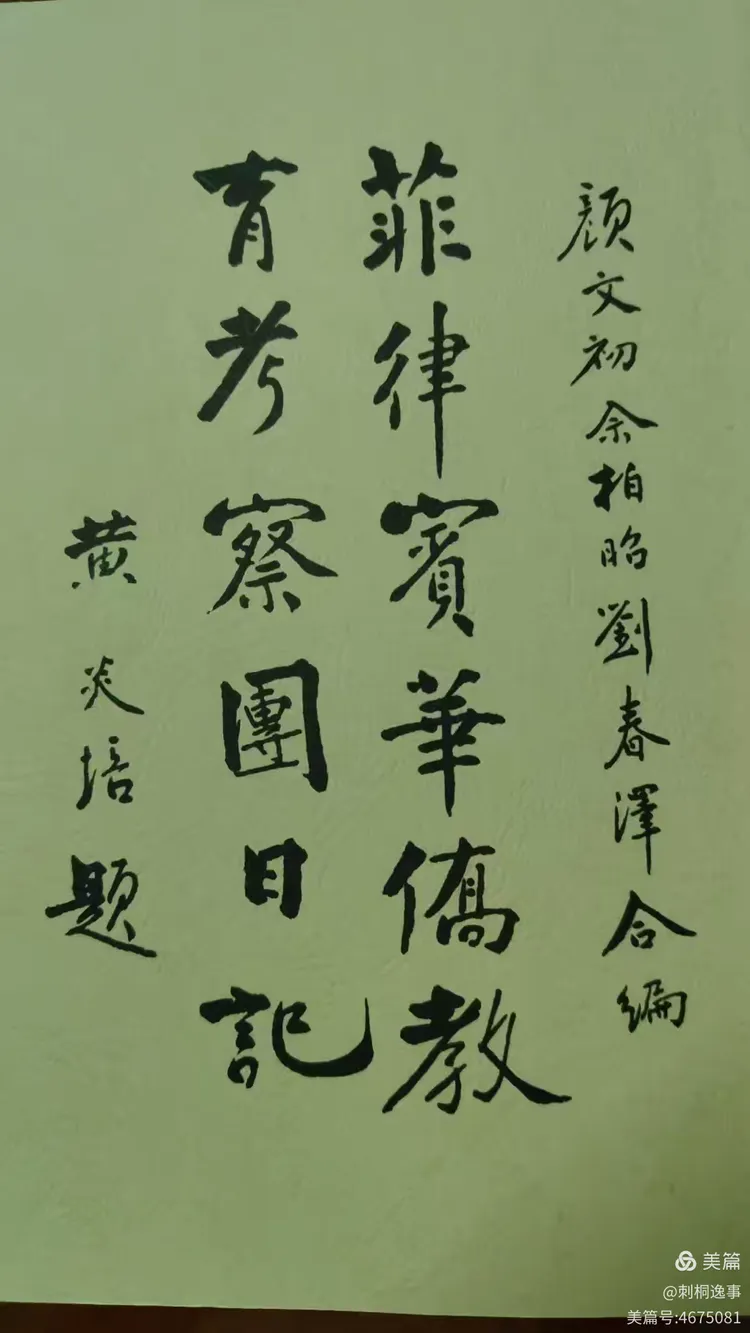 顔文初余柏昭劉春澤合編
菲律賓華僑教
育考察團日記
黄炎培題
美篇
@刺桐逸事
美篇号:4675081